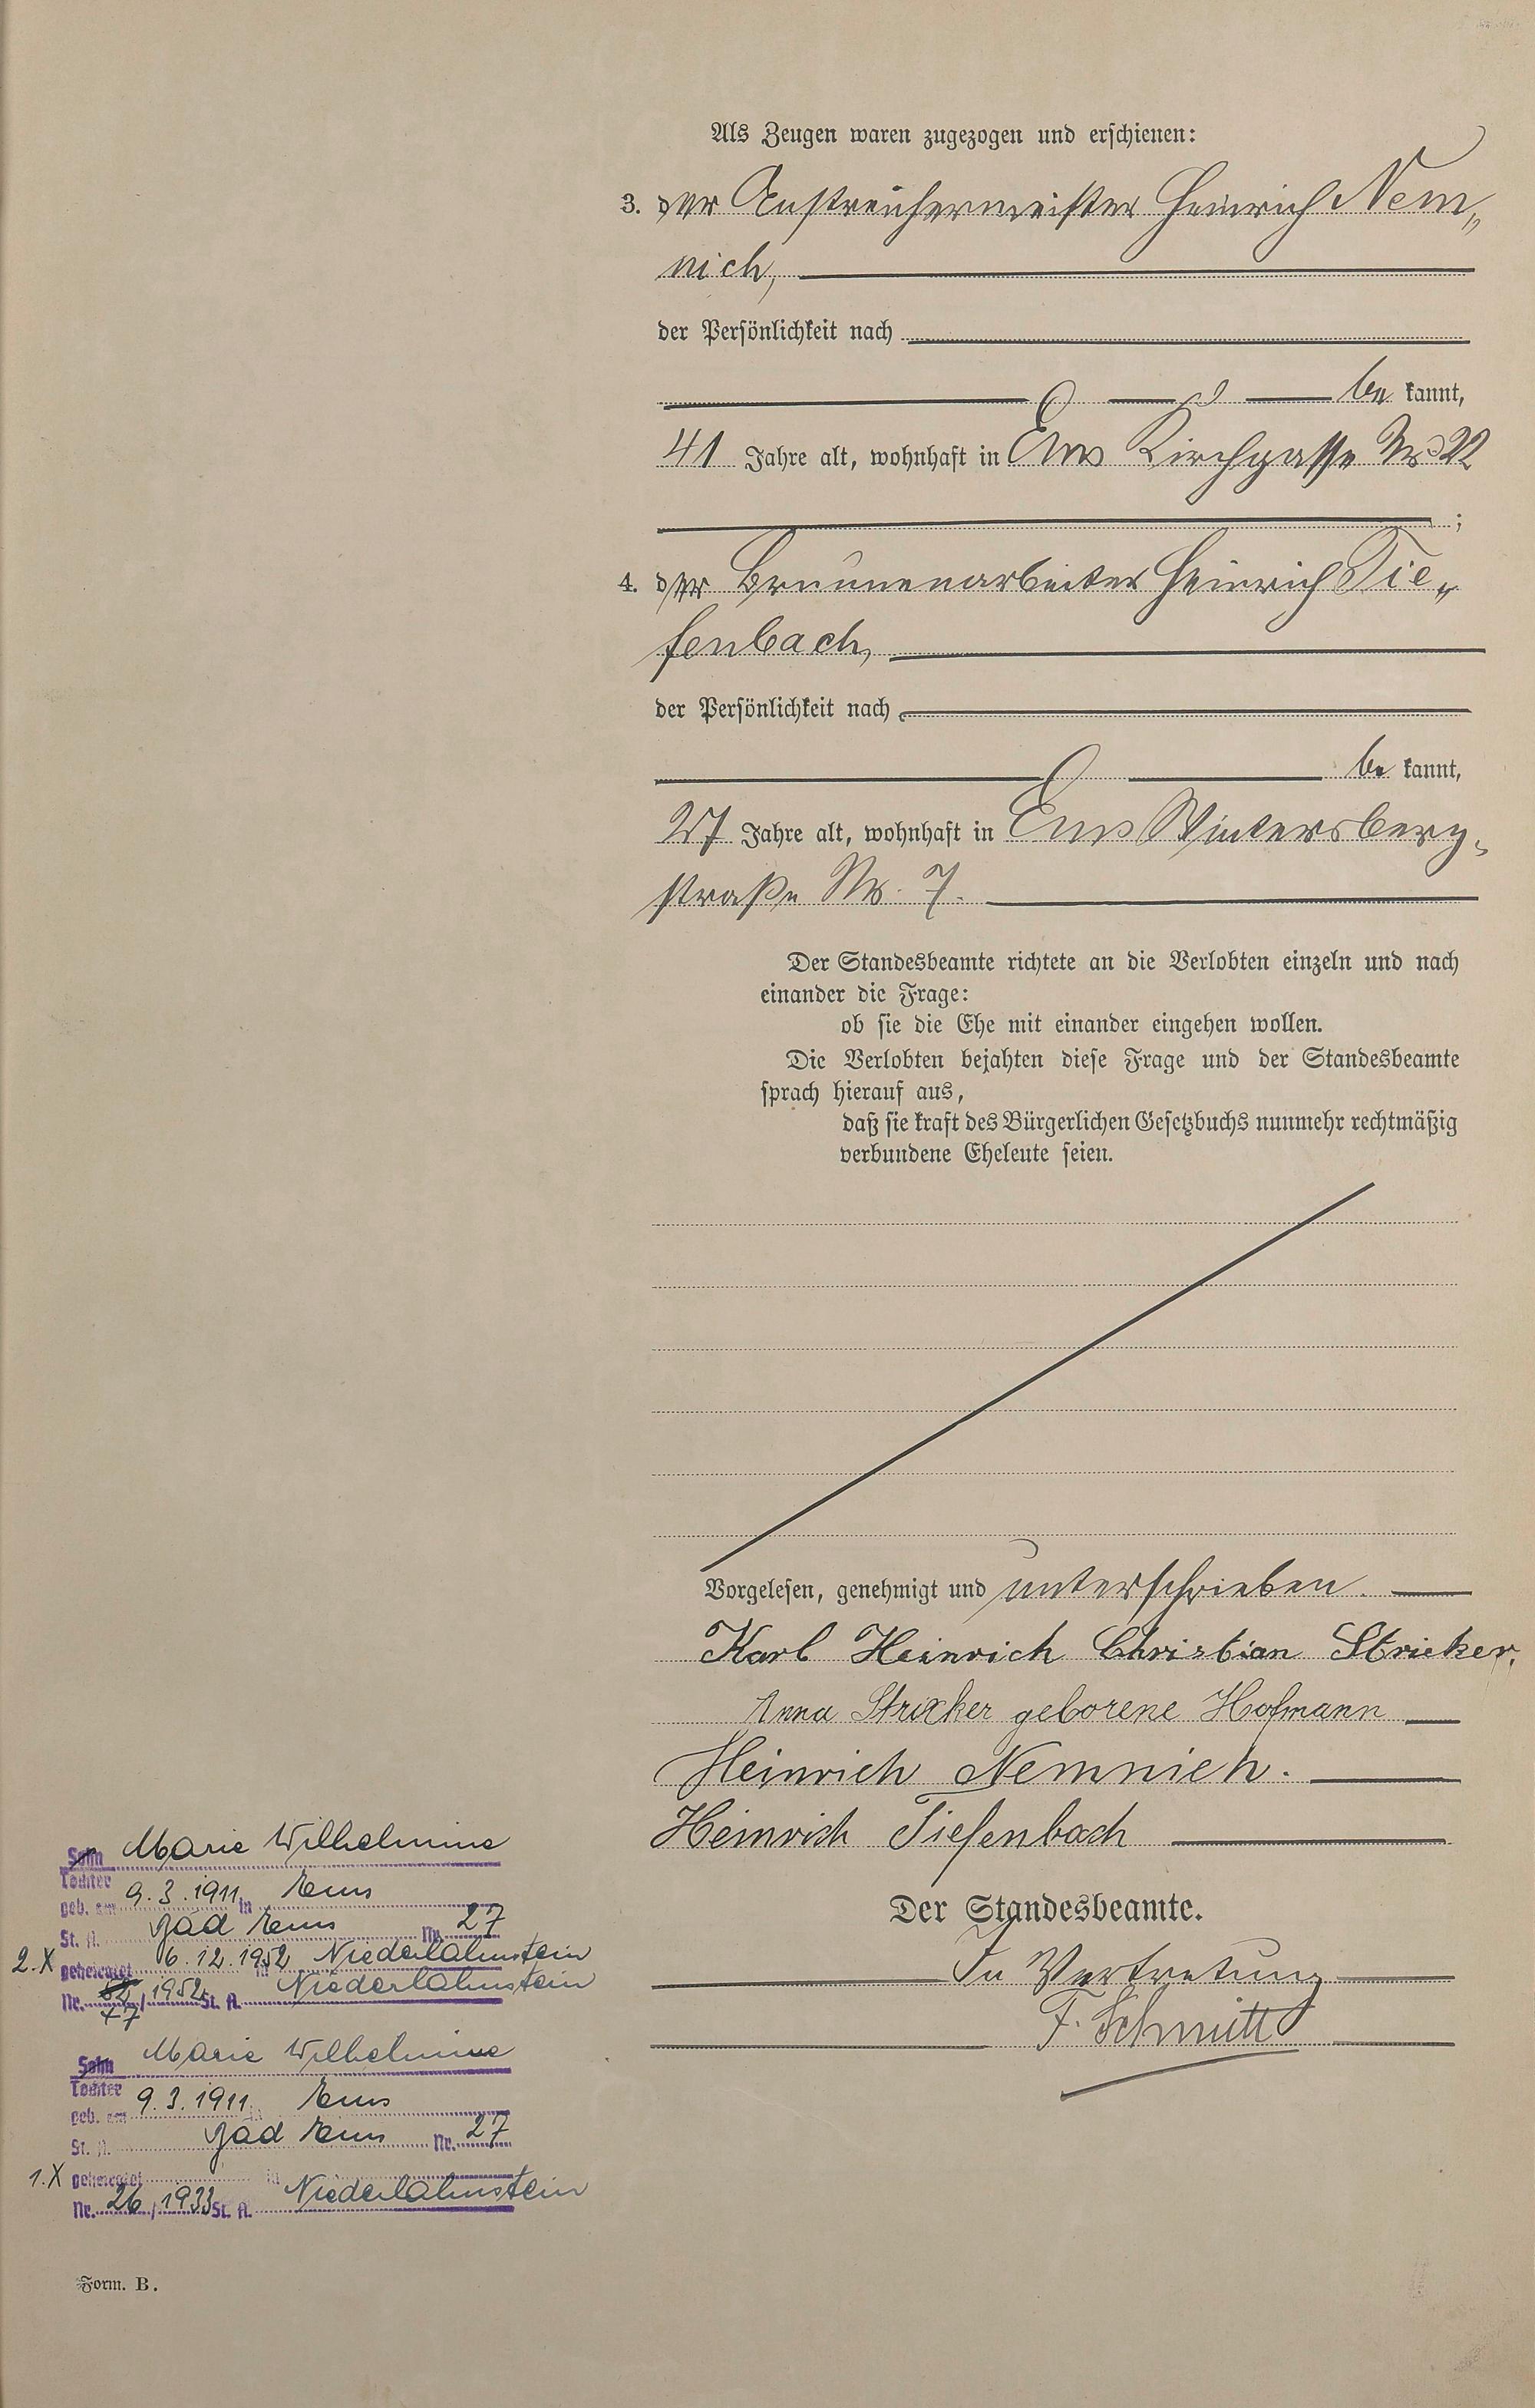 Als Zeugen waren zugezogen und erschienen:
3. der Anstreichermeister Heinrich Nem„
nich,
der Persönlichkeit nach
be kannt,
41 Jahre alt, wohnhaft in Ems Kirchgasse No 22
;
4. der Brunnenarbeiter Heinrich Tie„
fenbach,
der Persönlichkeit nach
be kannt,
27 Jahre alt, wohnhaft in Ems Wintersberg„
straße No. 7.
Der Standesbeamte richtete an die Verlobten einzeln und nach
einander die Frage:
ob sie die Ehe mit einander eingehen wollen.
Die Verlobten bejahten diese Frage und der Standesbeamte
sprach hierauf aus,
daß sie kraft des Bürgerlichen Gesetzbuchs nunmehr rechtmäßig
verbundene Eheleute seien.
Vorgelesen, genehmigt und unterschrieben.
Karl Heinrich Christian Stricker.
Anna Stricker geborene Hofmann
Heinrich Nemnich.
Heinrich Tiefenbach
Der Standesbeamte.
In Vertretung
F. Schmitt
Sohn Marie Wilhelmine
Tochter
geb. am 9.3.1911 in Ems
St. A. Bad Ems Nr. 27
2.X geheiratet 6.12.1952 in Niederlahnstein
Nr. 52/1952 St. A. Niederlahnstein
77
Sohn Marie Wilhelmine
Tochter
geb. am 9.3.1911 in Ems
St. A. Bad Ems Nr. 27
1.X geheiratet in
Nr. 26/1933 St. A. Niederlahnstein
Form. B.